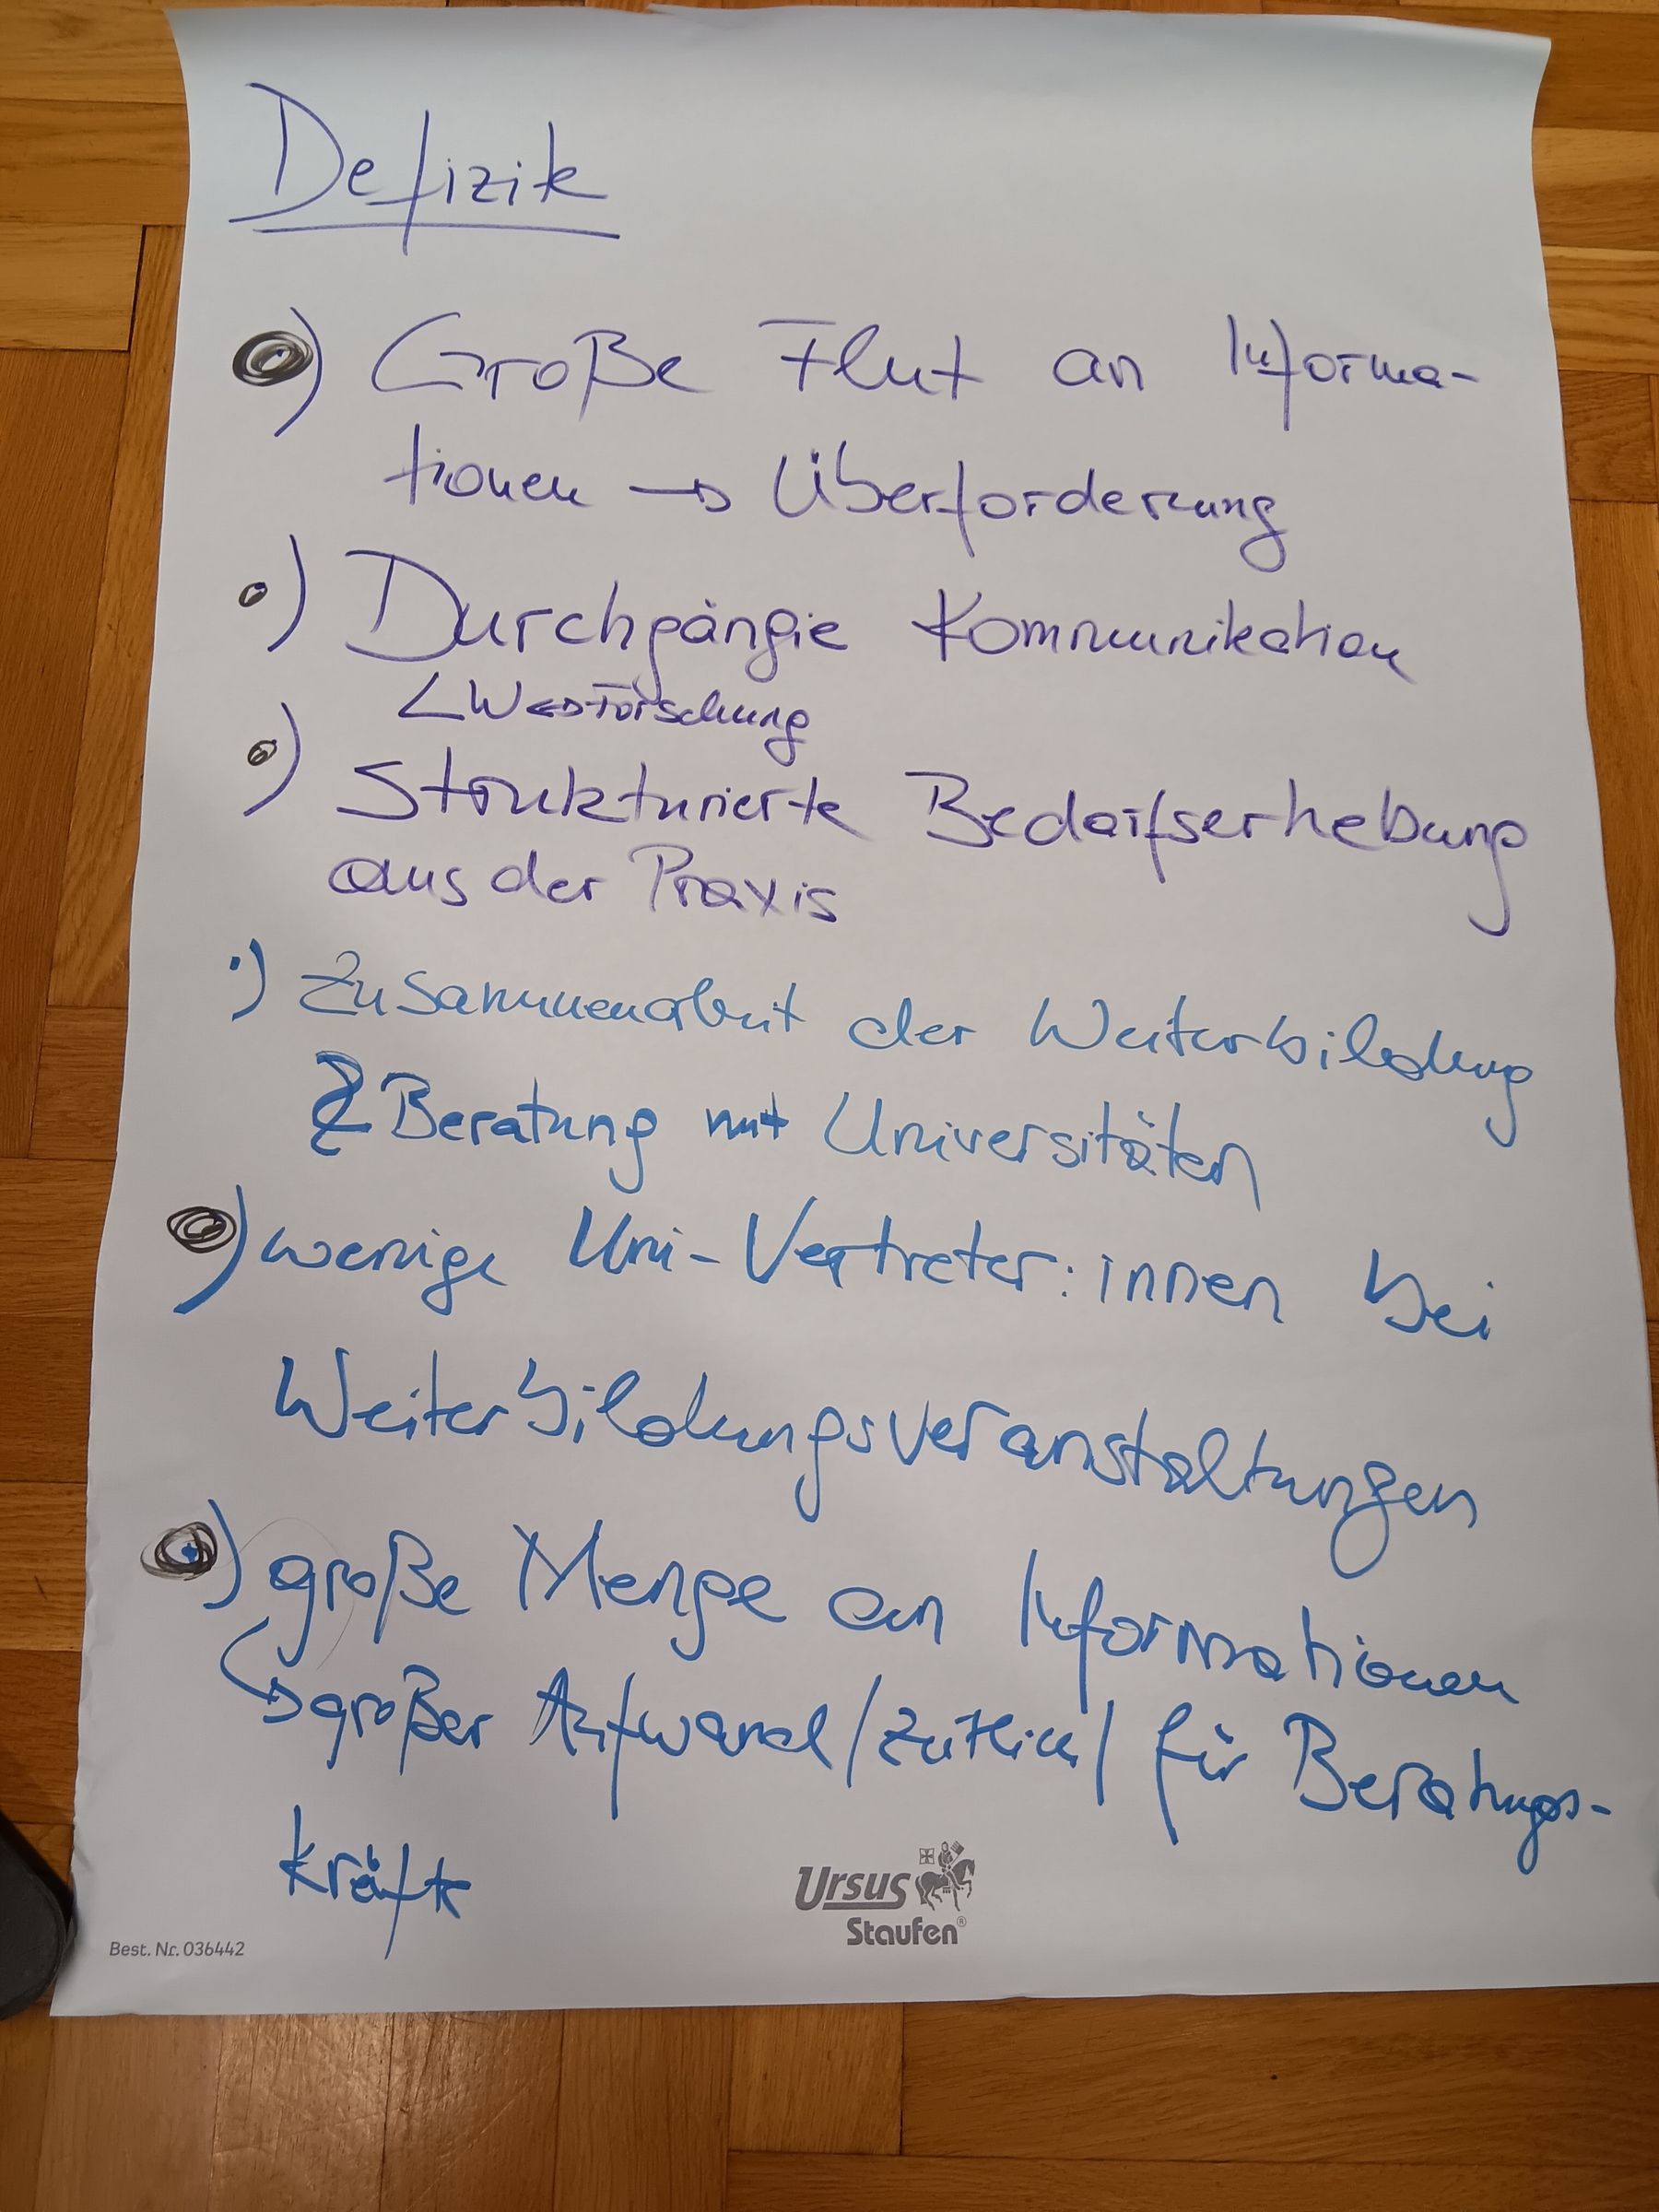 Defizite
•) Große Flut an Informa-
tionen → Überforderung
•) Durchgängie Kommunikation
LW ↔ Forschung
•) Strukturierte Bedarfserhebung
aus der Praxis
•) Zusammenarbeit der Weiterbildung
& Beratung mit Universitäten
•) wenige Uni-Vertreter:innen bei
Weiterbildungsveranstaltungen
•) große Menge an Informationen
↳ großer Aufwand /zeitlich/ für Beratungs-
kräfte
Ursus
Staufen®
Best. Nr. 036442